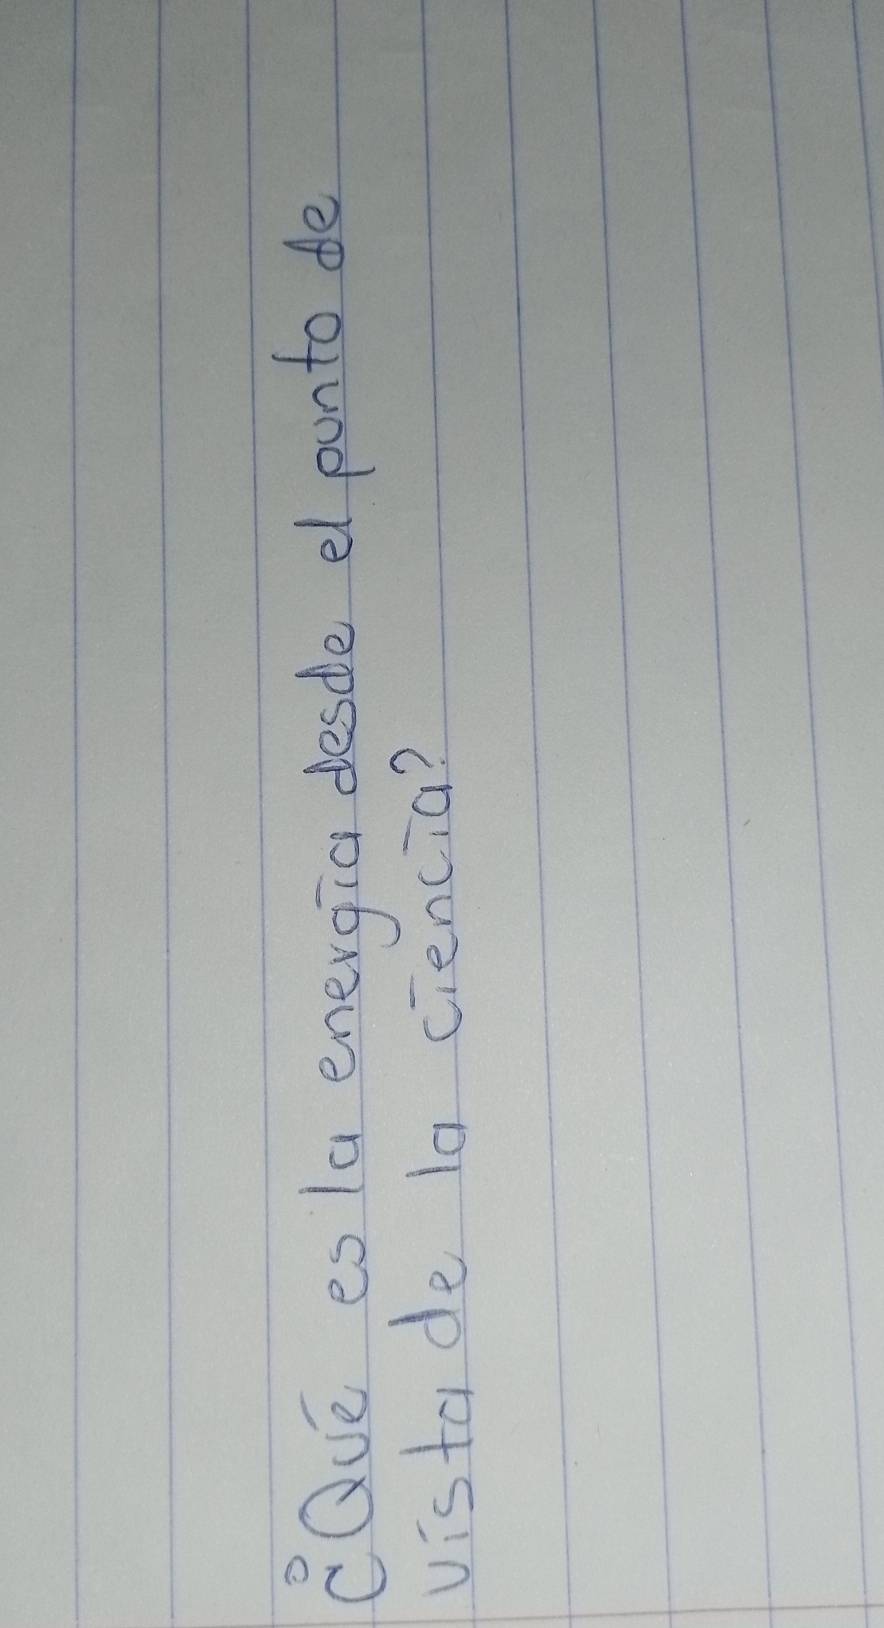 ¿Qué es la energía desde el punto de
vista de la ciencia?